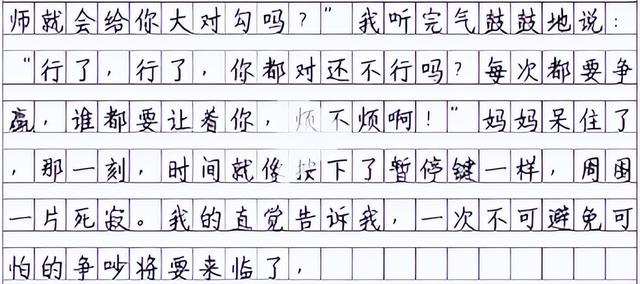 师就会给你大对勾吗？”我听完气鼓鼓地说：
“行了，行了，你都对还不行吗？每次都要争
赢，谁都要让着你，烦不烦啊！”妈妈呆住了
，那一刻，时间就像按下了暂停键一样，周围
一片死寂。我的直觉告诉我，一次不可避免可
怕的争吵将要来临了，